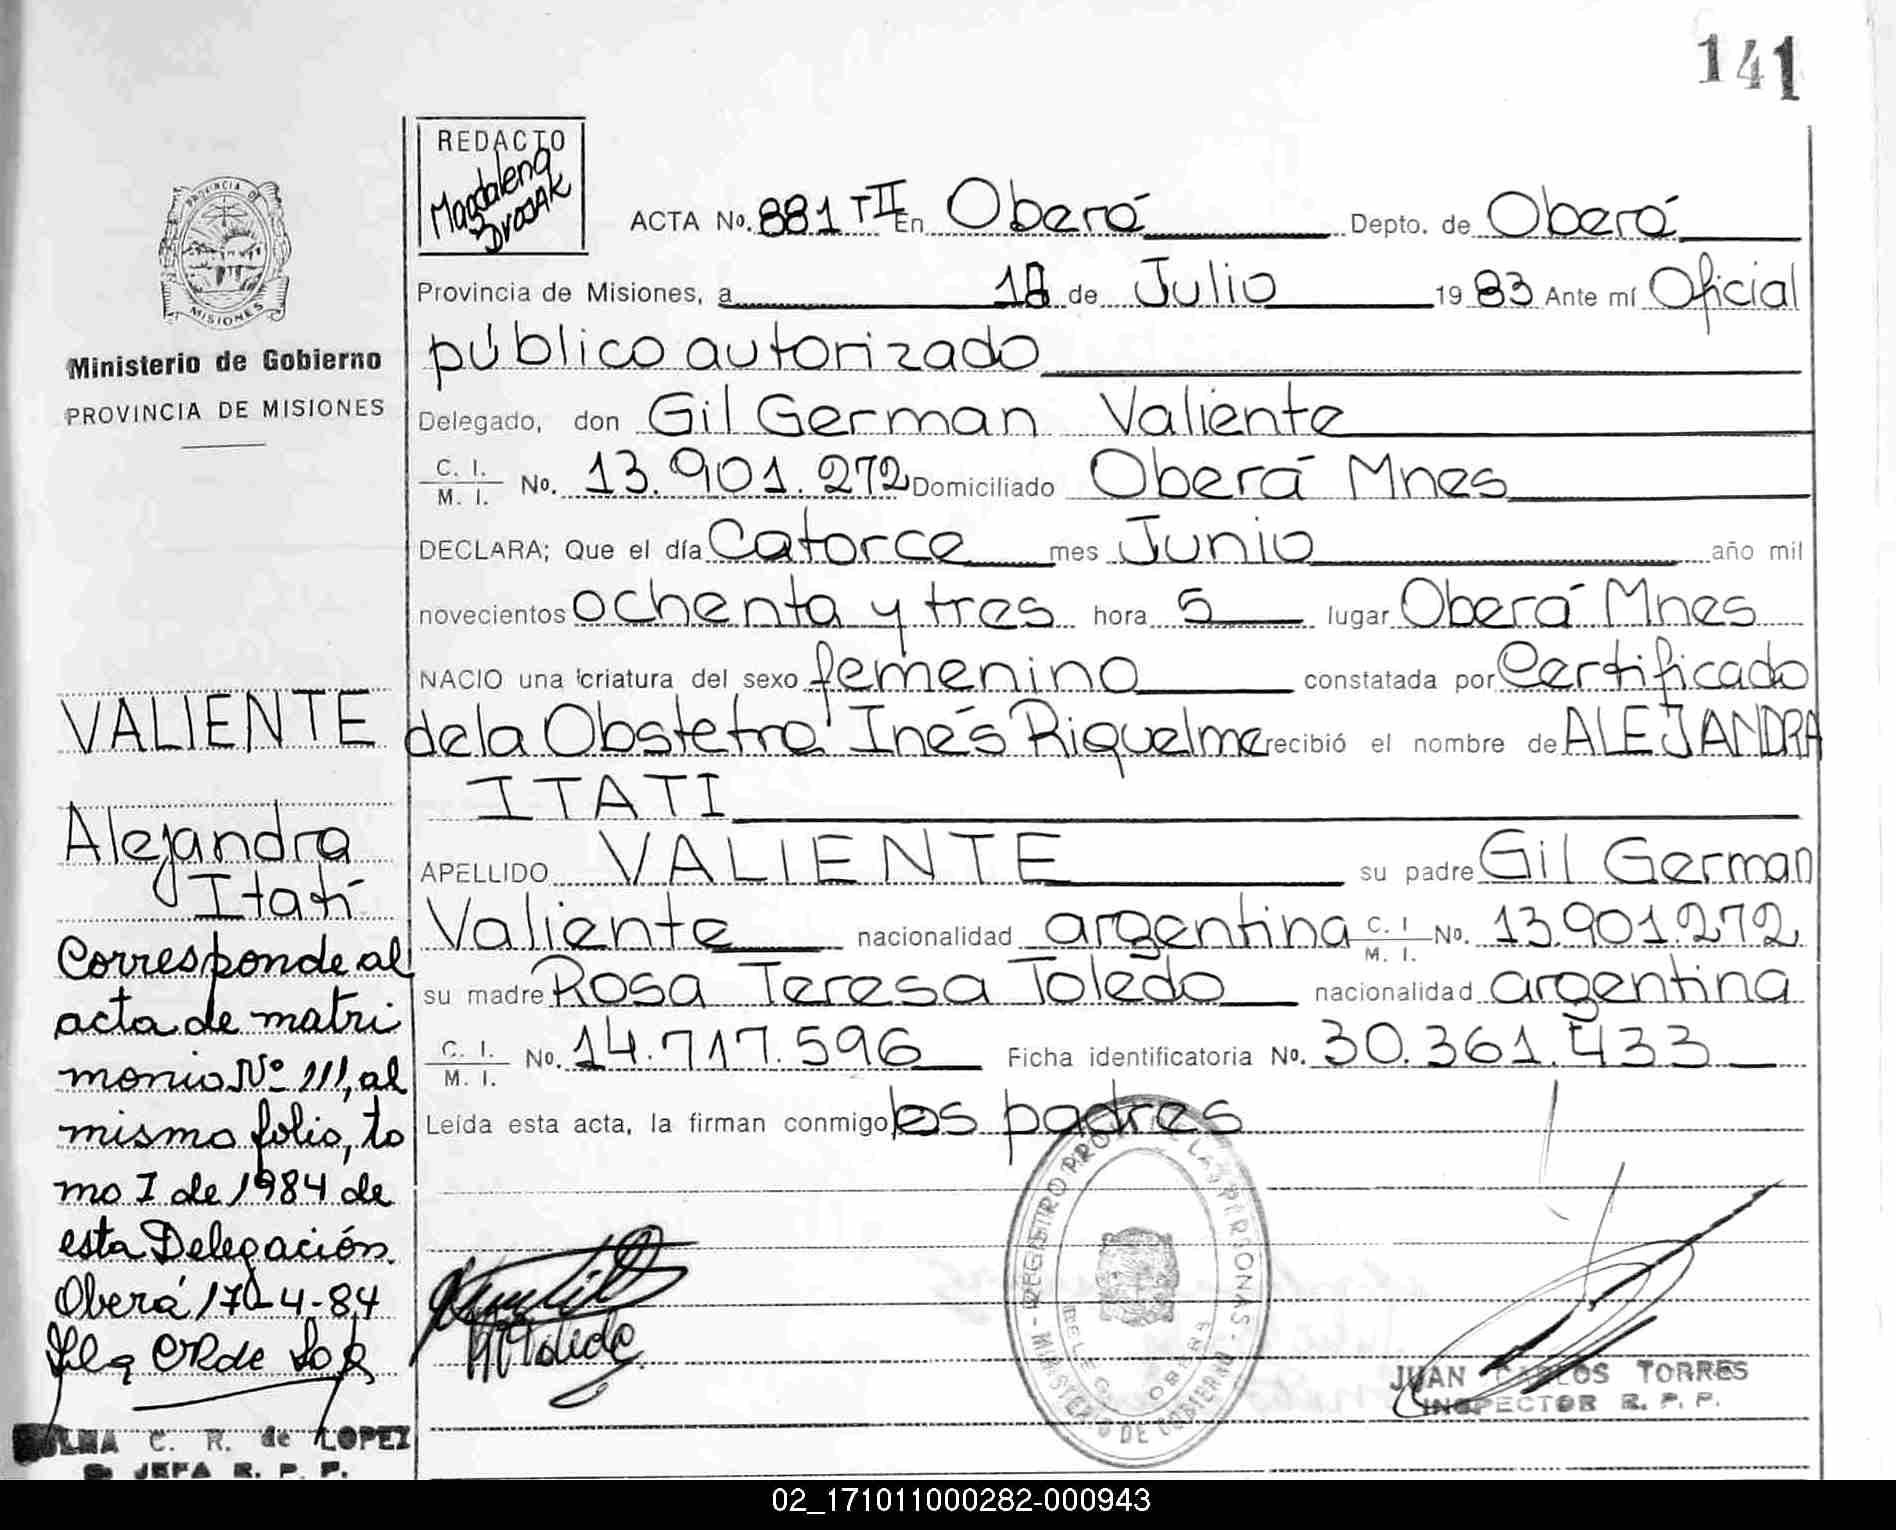 141
REDACTO
Magdalena
Dvojak
ACTA No. 881 T II En Oberá Depto. de Oberá
Provincia de Misiones, a 18 de Julio 1983 Ante mí Oficial
público autorizado
Delegado, don Gil German Valiente
C. I. / M. I. No. 13.901.272 Domiciliado Oberá Mnes
DECLARA; Que el día Catorce mes Junio año mil
novecientos ochenta y tres hora 5 lugar Oberá Mnes
NACIO una criatura del sexo femenino constatada por Certificado
de la Obstetra Inés Riquelme recibió el nombre de ALEJANDRA
ITATI
APELLIDO VALIENTE su padre Gil German
Valiente nacionalidad argentina C. I. / M. I. No. 13.901.272
su madre Rosa Teresa Toledo nacionalidad argentina
C. I. / M. I. No. 14.717.596 Ficha identificatoria No. 30.361.433
Leída esta acta, la firman conmigo los padres
PROVINCIA DE
MISIONES
Ministerio de Gobierno
PROVINCIA DE MISIONES
VALIENTE
Alejandra
Itatí
Corresponde al
acta de matri
monio Nº 111, al
mismo folio, to
mo I de 1984 de
esta Delegación.
Oberá 17-4-84
C. R. de LOPEZ
JEFA R. P. P.
Toledo
REGISTRO PROV. DE LAS PERSONAS - MINISTERIO DE GOBIERNO
OBERA
JUAN CARLOS TORRES
INSPECTOR R. P. P.
02_171011000282-000943